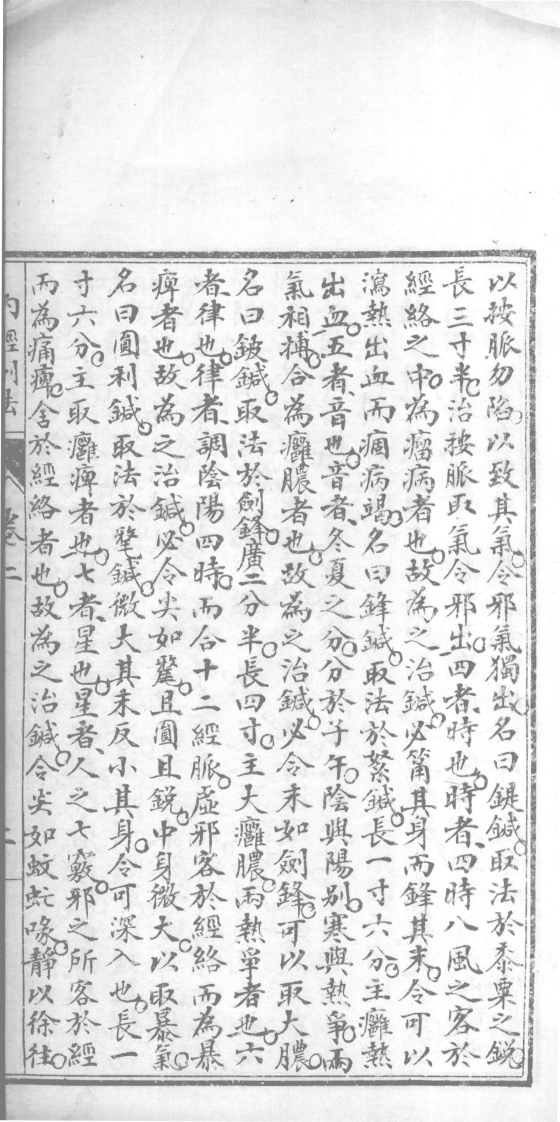 以按脈勿陷以致其氣。令邪氣獨出。名曰鍉鍼。取法於黍粟之銳。
長三寸半。治按脈取氣令邪出。四者時也。時者、四時八風之客於
經絡之中。為瘤病者也。故為之治鍼。必筩其身而鋒其末。令可以
瀉熱出血而痼病竭。名曰鋒鍼。取法於絮鍼。長一寸六分。主癰熱
出血。五者、音也。音者、冬夏之分。分於子午。陰與陽別。寒與熱爭。兩
氣相搏。合為癰膿者也。故為之治鍼。必令末如劍鋒。可以取大膿。
名曰鈹鍼。取法於劍鋒。廣二分半。長四寸。主大癰膿。兩熱爭者也。六
者、律也。律者、調陰陽四時。而合十二經脈。虛邪客於經絡而為暴
痺者也。故為之治鍼。必令尖如氂。且圓且銳。中身微大。以取暴氣。
名曰圓利鍼。取法於氂鍼。微大其末。反小其身。令可深入也。長一
寸六分。主取癰痺者也。七者、星也。星者、人之七竅。邪之所客於經
而為痛痺。舍於經絡者也。故為之治鍼。令尖如蚊虻喙。靜以徐往。
內經刺法
卷二
二